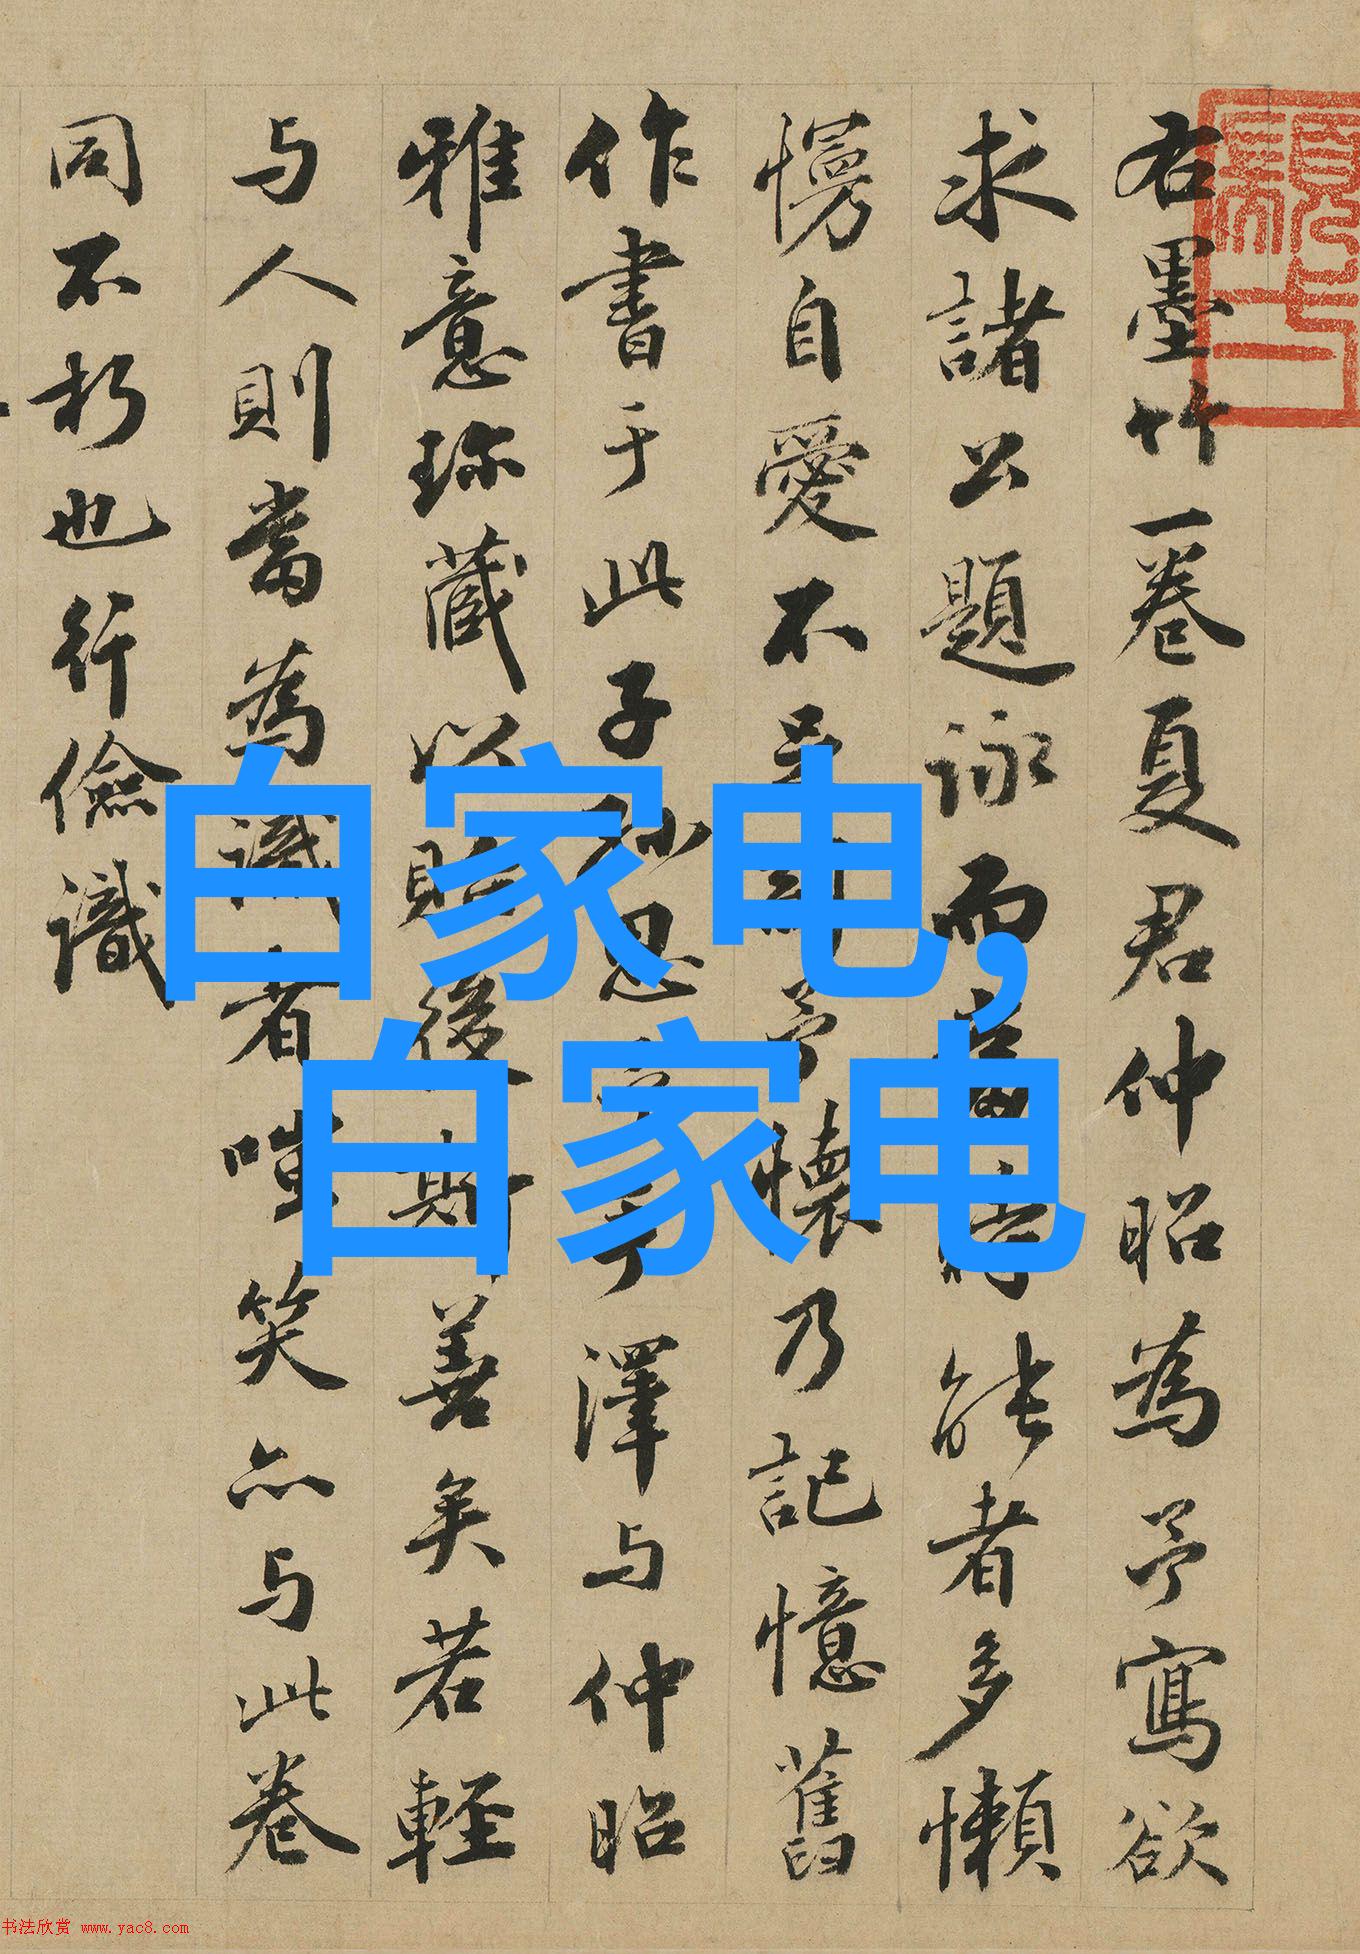 右墨竹一卷夏君仲昭為予寫欲
求諸公題詠而能者多懶
慢自愛不予懷乃記憶舊
作書于此子孫思予澤与仲昭
雅意珎藏以貽後斯善矣若輕
与人則當為識者嗤笑亦与此卷
同不朽也行儉識
白家电,
白家电
书法欣赏 www.yac8.com